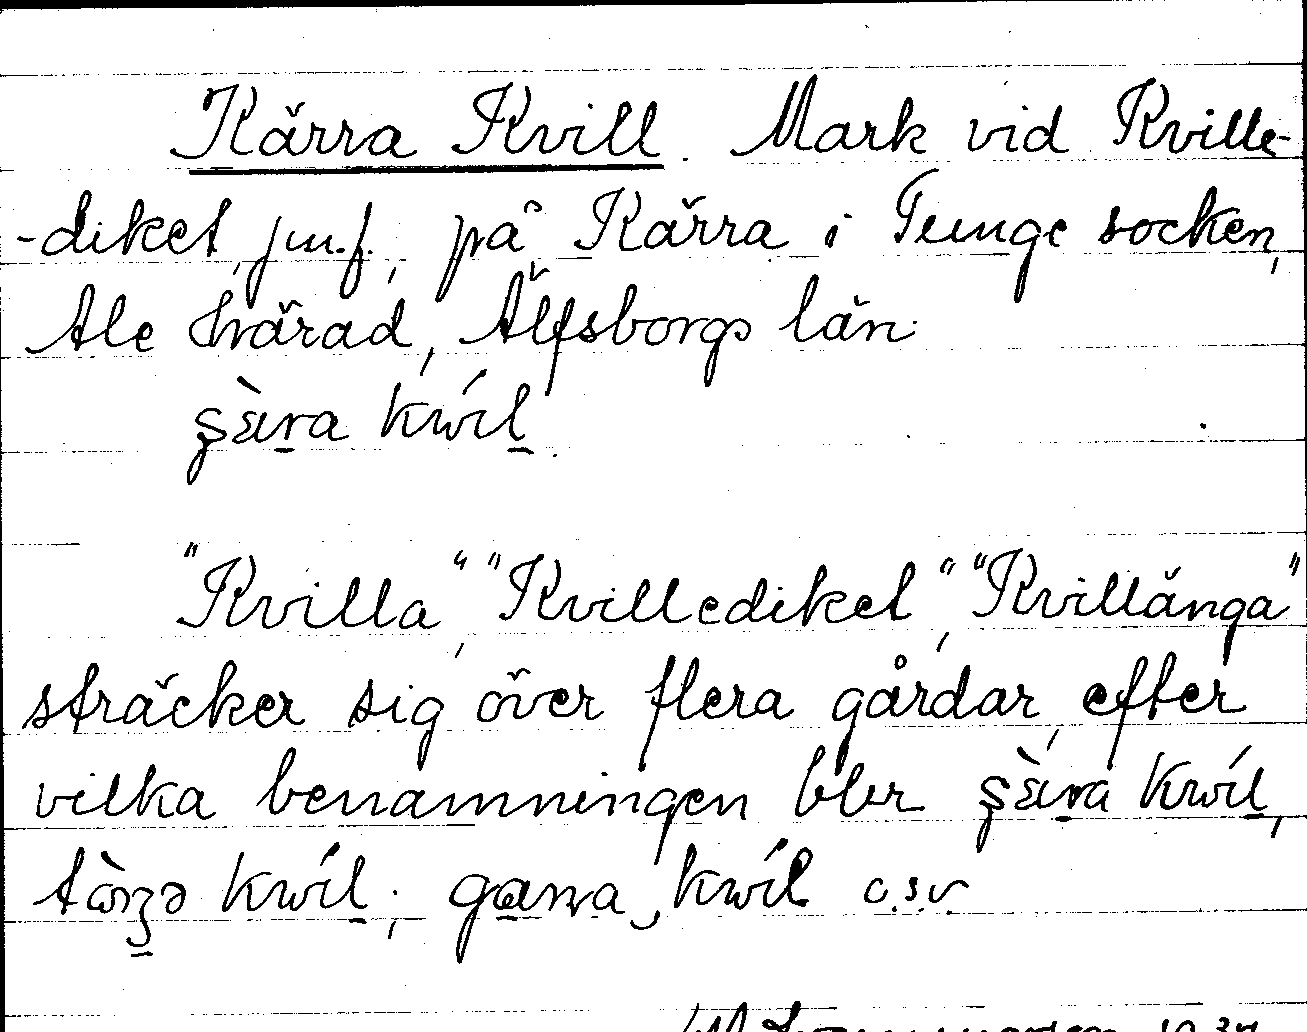 Kärra Kvill. Mark vid Kville-
-diket, jm.f., på Kärra i Tunge socken,
Ale härad, Älfsborgs län.
kwíl.
"Kvilla", "Kvillediket", "Kvillänga"
sträcker sig över flera gårdar, efter
vilka benämningen blir kwíl,
kwíl; kwíl o.s.v.